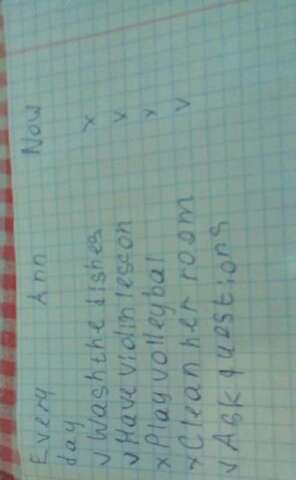 Every Ann Now
day
v Wash the dishes x
v Have violin lesson v
x Play volleybal x
x Clean her room v
v Ask questions